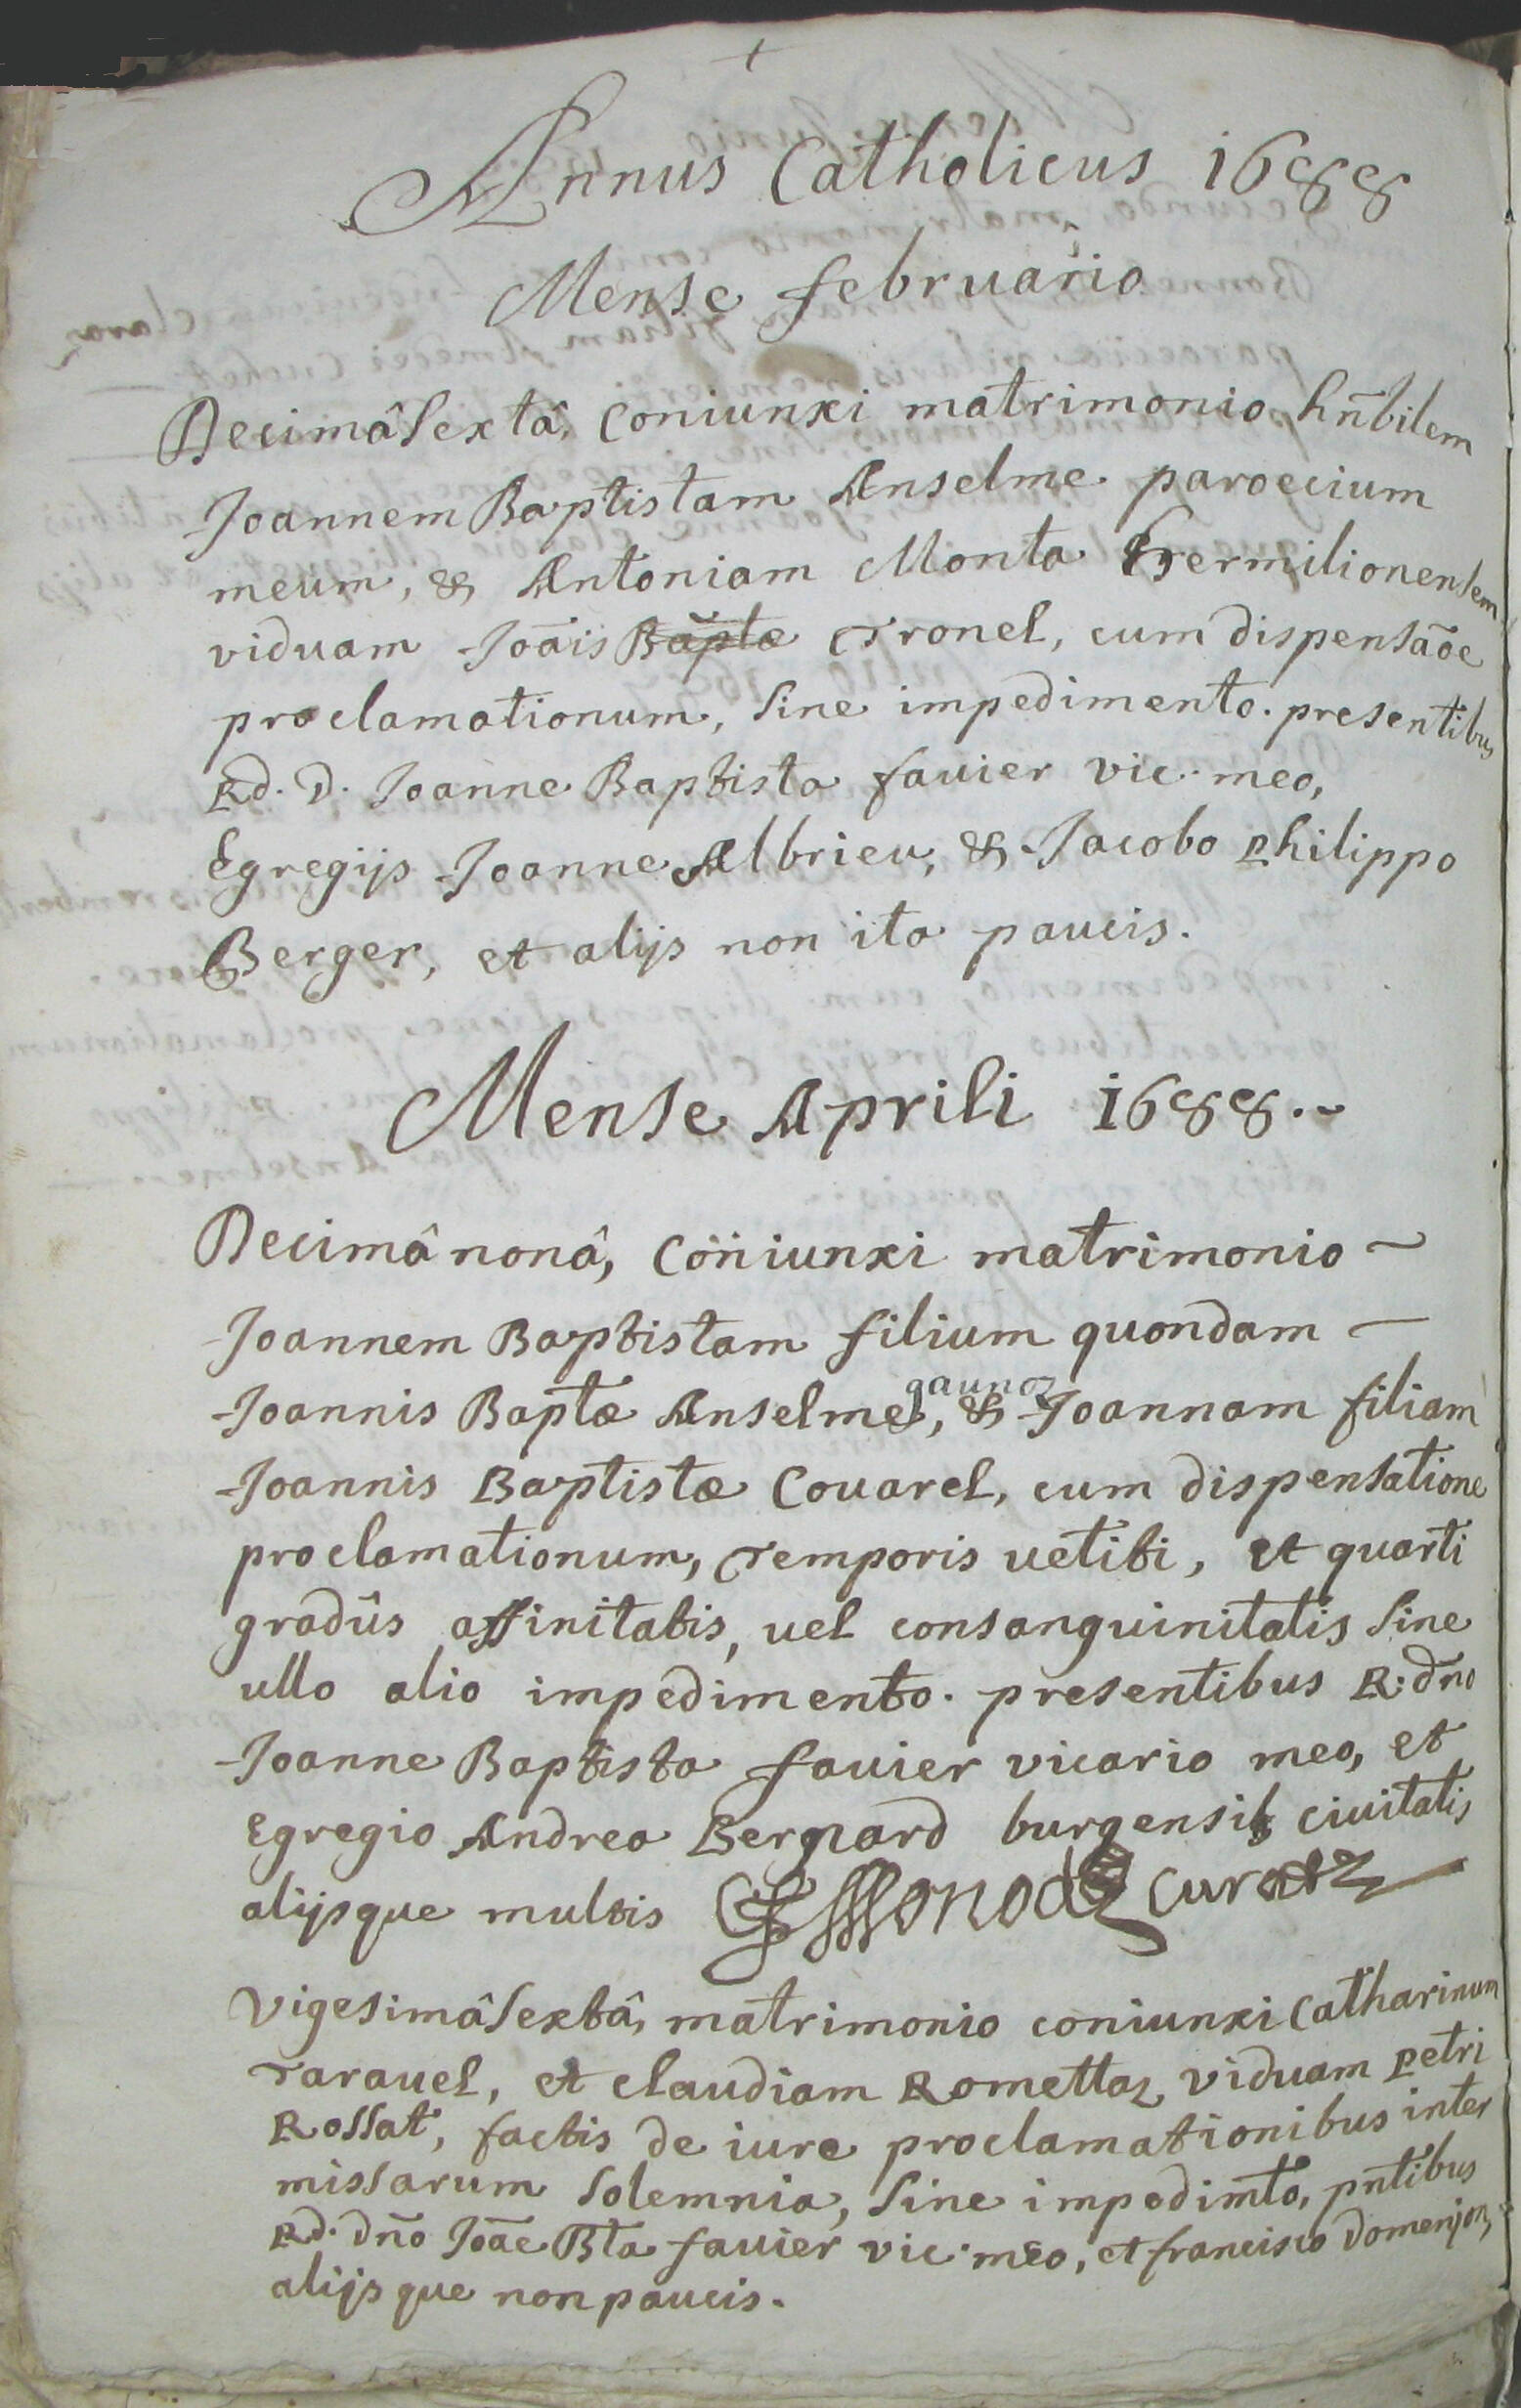 Annus Catholicus 1688
Mense februario
Decimâ Sextâ, Coniunxi matrimonio hñbilem
Joannem Baptistam Anselme paroecium
meum, & Antoniam Monta Hermilionensem
viduam Joãis Baptæ Tronel, cum dispensãõe
proclamationum, Sine impedimento. presentibus
Rd. D. Joanne Baptista favier vic. meo,
Egregijs Joanne Albrieu, & Jacobo Philippo
Berger, et alijs non ita paucis.
Mense Aprili 1688.
Decimâ nonâ, Coniunxi matrimonio
Joannem Baptistam filium quondam
Joannis Baptæ Anselme gaunoz, & Joannam filiam
Joannis Baptistæ Couarel, cum dispensatione
proclamationum, Temporis uetiti, et quarti
gradûs affinitatis, uel consanguinitatis Sine
ullo alio impedimento. presentibus R. dño
Joanne Baptista fauier vicario meo, et
Egregio Andrea Bernard burgensi ciuitatis
alijsque multis curatus
Vigesimâ Sextâ, matrimonio coniunxi Catharinum
Tarauel, et claudiam Romettaz viduam Petri
Rossat, factis de iure proclamationibus inter
missarum Solemnia, Sine impedimto, pñtibus
Rd. dño Joãe Bta fauier vic. meo, et francisco Domenjon,
alijsque non paucis.